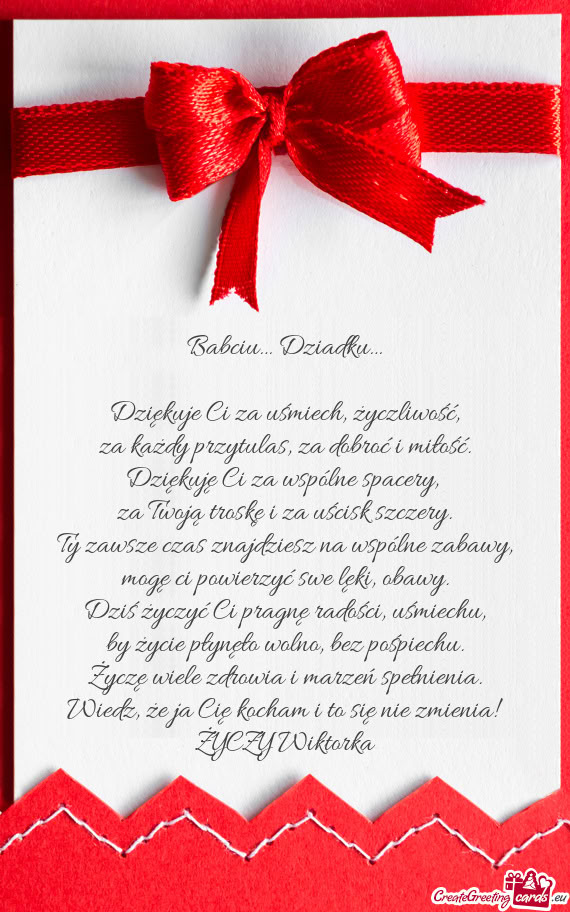 Babciu... Dziadku...
Dziękuje Ci za uśmiech, życzliwość,
za każdy przytulas, za dobroć i miłość.
Dziękuję Ci za wspólne spacery,
za Twoją troskę i za uścisk szczery.
Ty zawsze czas znajdziesz na wspólne zabawy,
mogę ci powierzyć swe lęki, obawy.
Dziś życzyć Ci pragnę radości, uśmiechu,
by życie płynęło wolno, bez pośpiechu.
Życzę wiele zdrowia i marzeń spełnienia.
Wiedz, że ja Cię kocham i to się nie zmienia!
ŻYCZY Wiktorka
CreateGreeting cards .eu